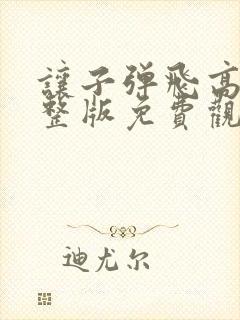 讓子弹飛高
整版免費觀
迪尤尔